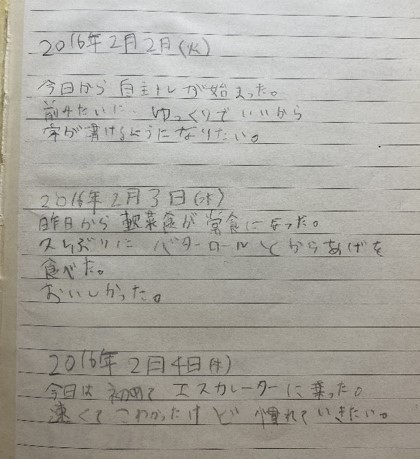 2016年2月2日(火)
今日から自主トレが始まった。
前みたいに、ゆっくりでいいから
字が書けるようになりたい。
2016年2月3日(水)
昨日から軟菜食が常食になった。
久しぶりにバターロールとからあげを
食べた。
おいしかった。
2016年2月4日(木)
今日は初めてエスカレーターに乗った。
速くてこわかったけど慣れていきたい。